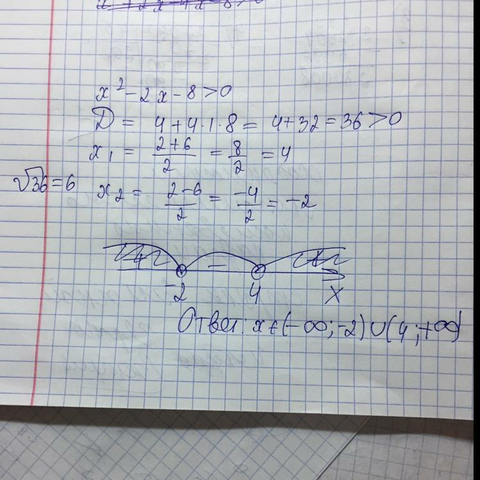 x² - 2x - 8 > 0
D = 4 + 4·1·8 = 4 + 32 = 36 > 0
x₁ = (2+6)/2 = 8/2 = 4
√36 = 6 x₂ = (2-6)/2 = -4/2 = -2
+ - +
-2 4 x
Ответ: x ∈ (-∞; -2) ∪ (4; +∞)